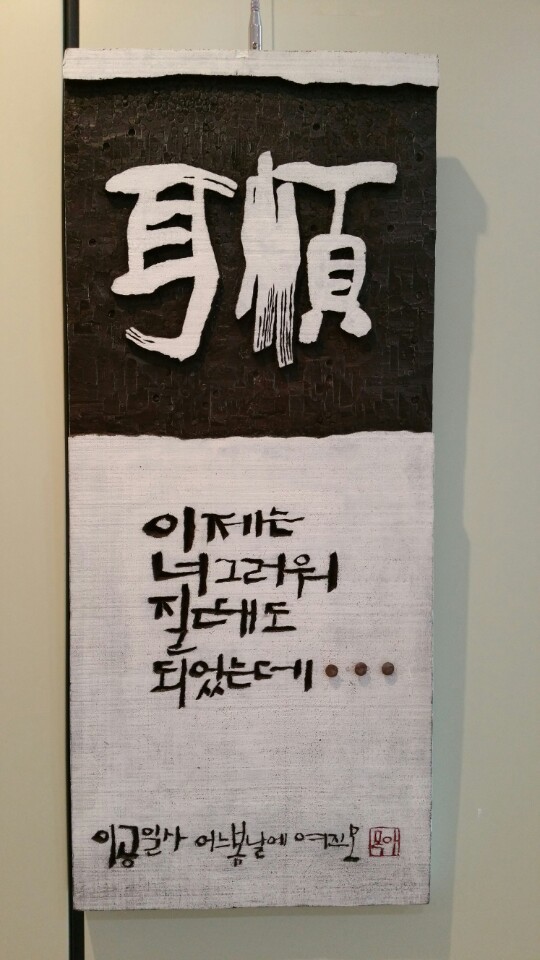 耳順
이제는
너그러워
질때도
되었는데...
이공일사 어느봄날에 여진모